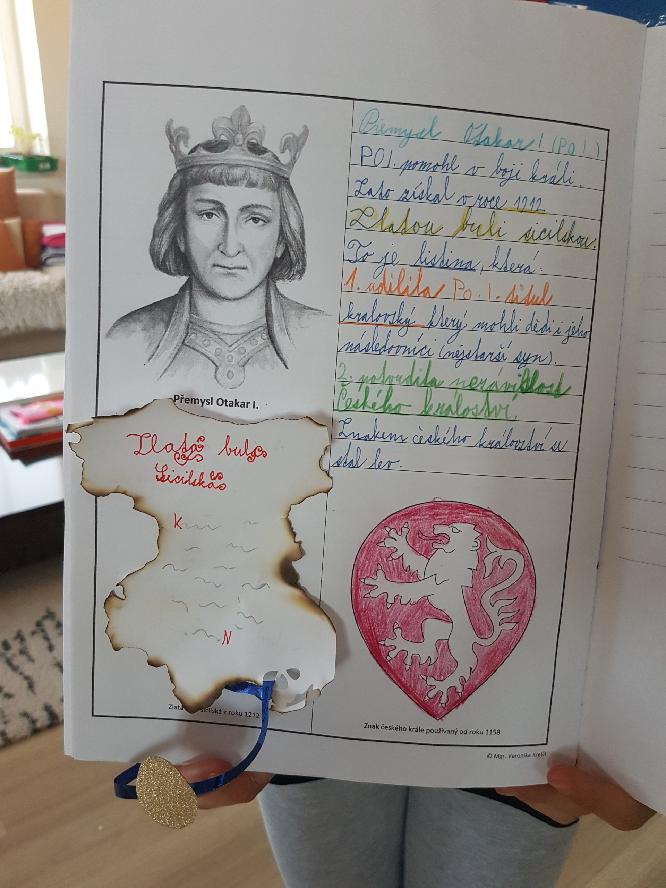 Přemysl Otakar I (PO I.)
PO I. pomohl v boji králi.
Zato získal v roce 1212
Zlatou buli sicilskou.
To je listina, která:
1. udělila Po. I. titul
kralovský, který mohli dědi i jeho
následovníci (nejstarší syn).
2. potvrdila nezávislost
Českého králoství.
Znakem českého království se
stal lev.
Přemysl Otakar I.
Zlatá bule
Sicilská
K
N
Zlatá sicilská z roku 1212
Znak českého krále používaný od roku 1158
© Mgr. Veronika